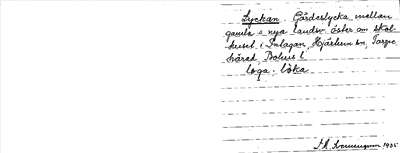 Lyckan. Gärdeslycka mellan
gamla o nya landsv. öster om skol-
huset i Intagan, Hjärtum sn, Torpe
härad, Bohus l.
loga: löka
1935